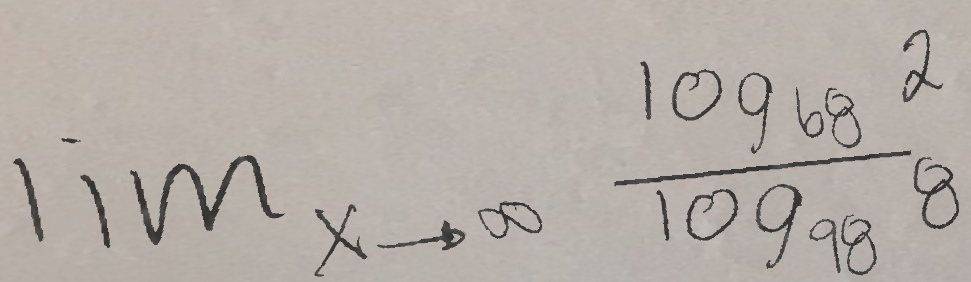 lim x→∞ log₆₈ 2 / log₉₈ 8